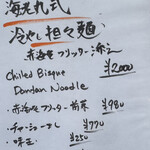 海老丸式
冷やし担々麺
赤海老フリッター添え
¥2000
Chiled Bisque
Dandan Noodle
・赤海老フリッター 前菜 ¥980
・チャーシュー ¥770
・味玉 ¥250